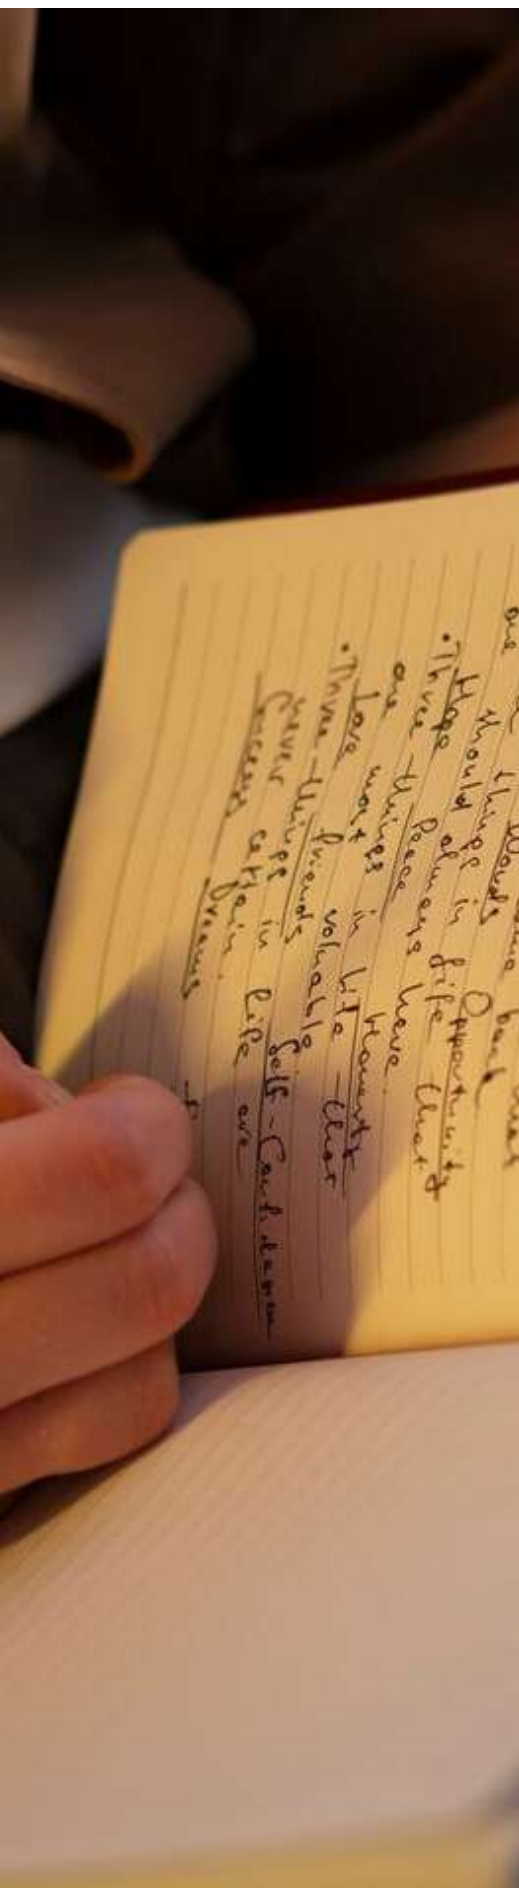 that
come back
Words Opportunity
things in Life that
one should always have.
Hope Peace Honesty
•Three things in Life that
are most valuable
Love Friends Self-Confidence
•Three things in life are
never certain.
Success Dreams F